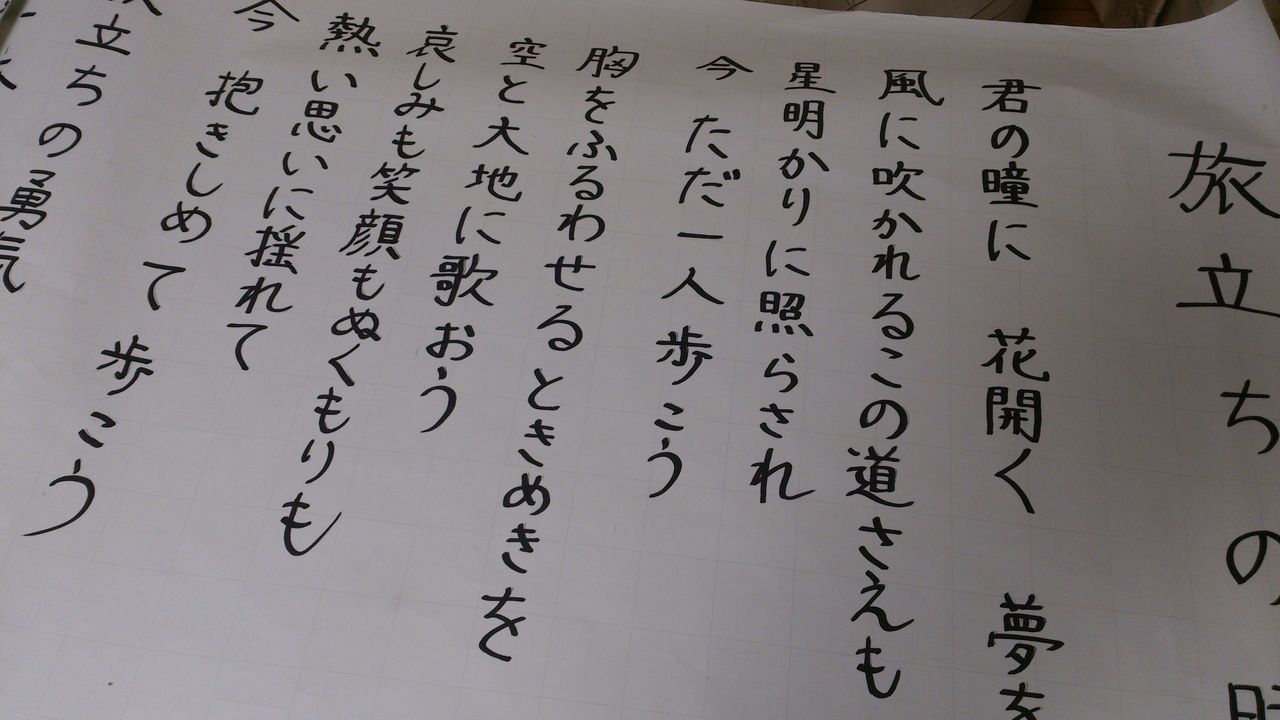 旅立ちの時
君の瞳に　花開く　夢を
風に吹かれるこの道さえも
星明かりに照らされ
今　ただ一人歩こう
胸をふるわせるときめきを
空と大地に歌おう
哀しみも笑顔もぬくもりも
熱い思いに揺れて
今　抱きしめて　歩こう
旅立ちの勇気